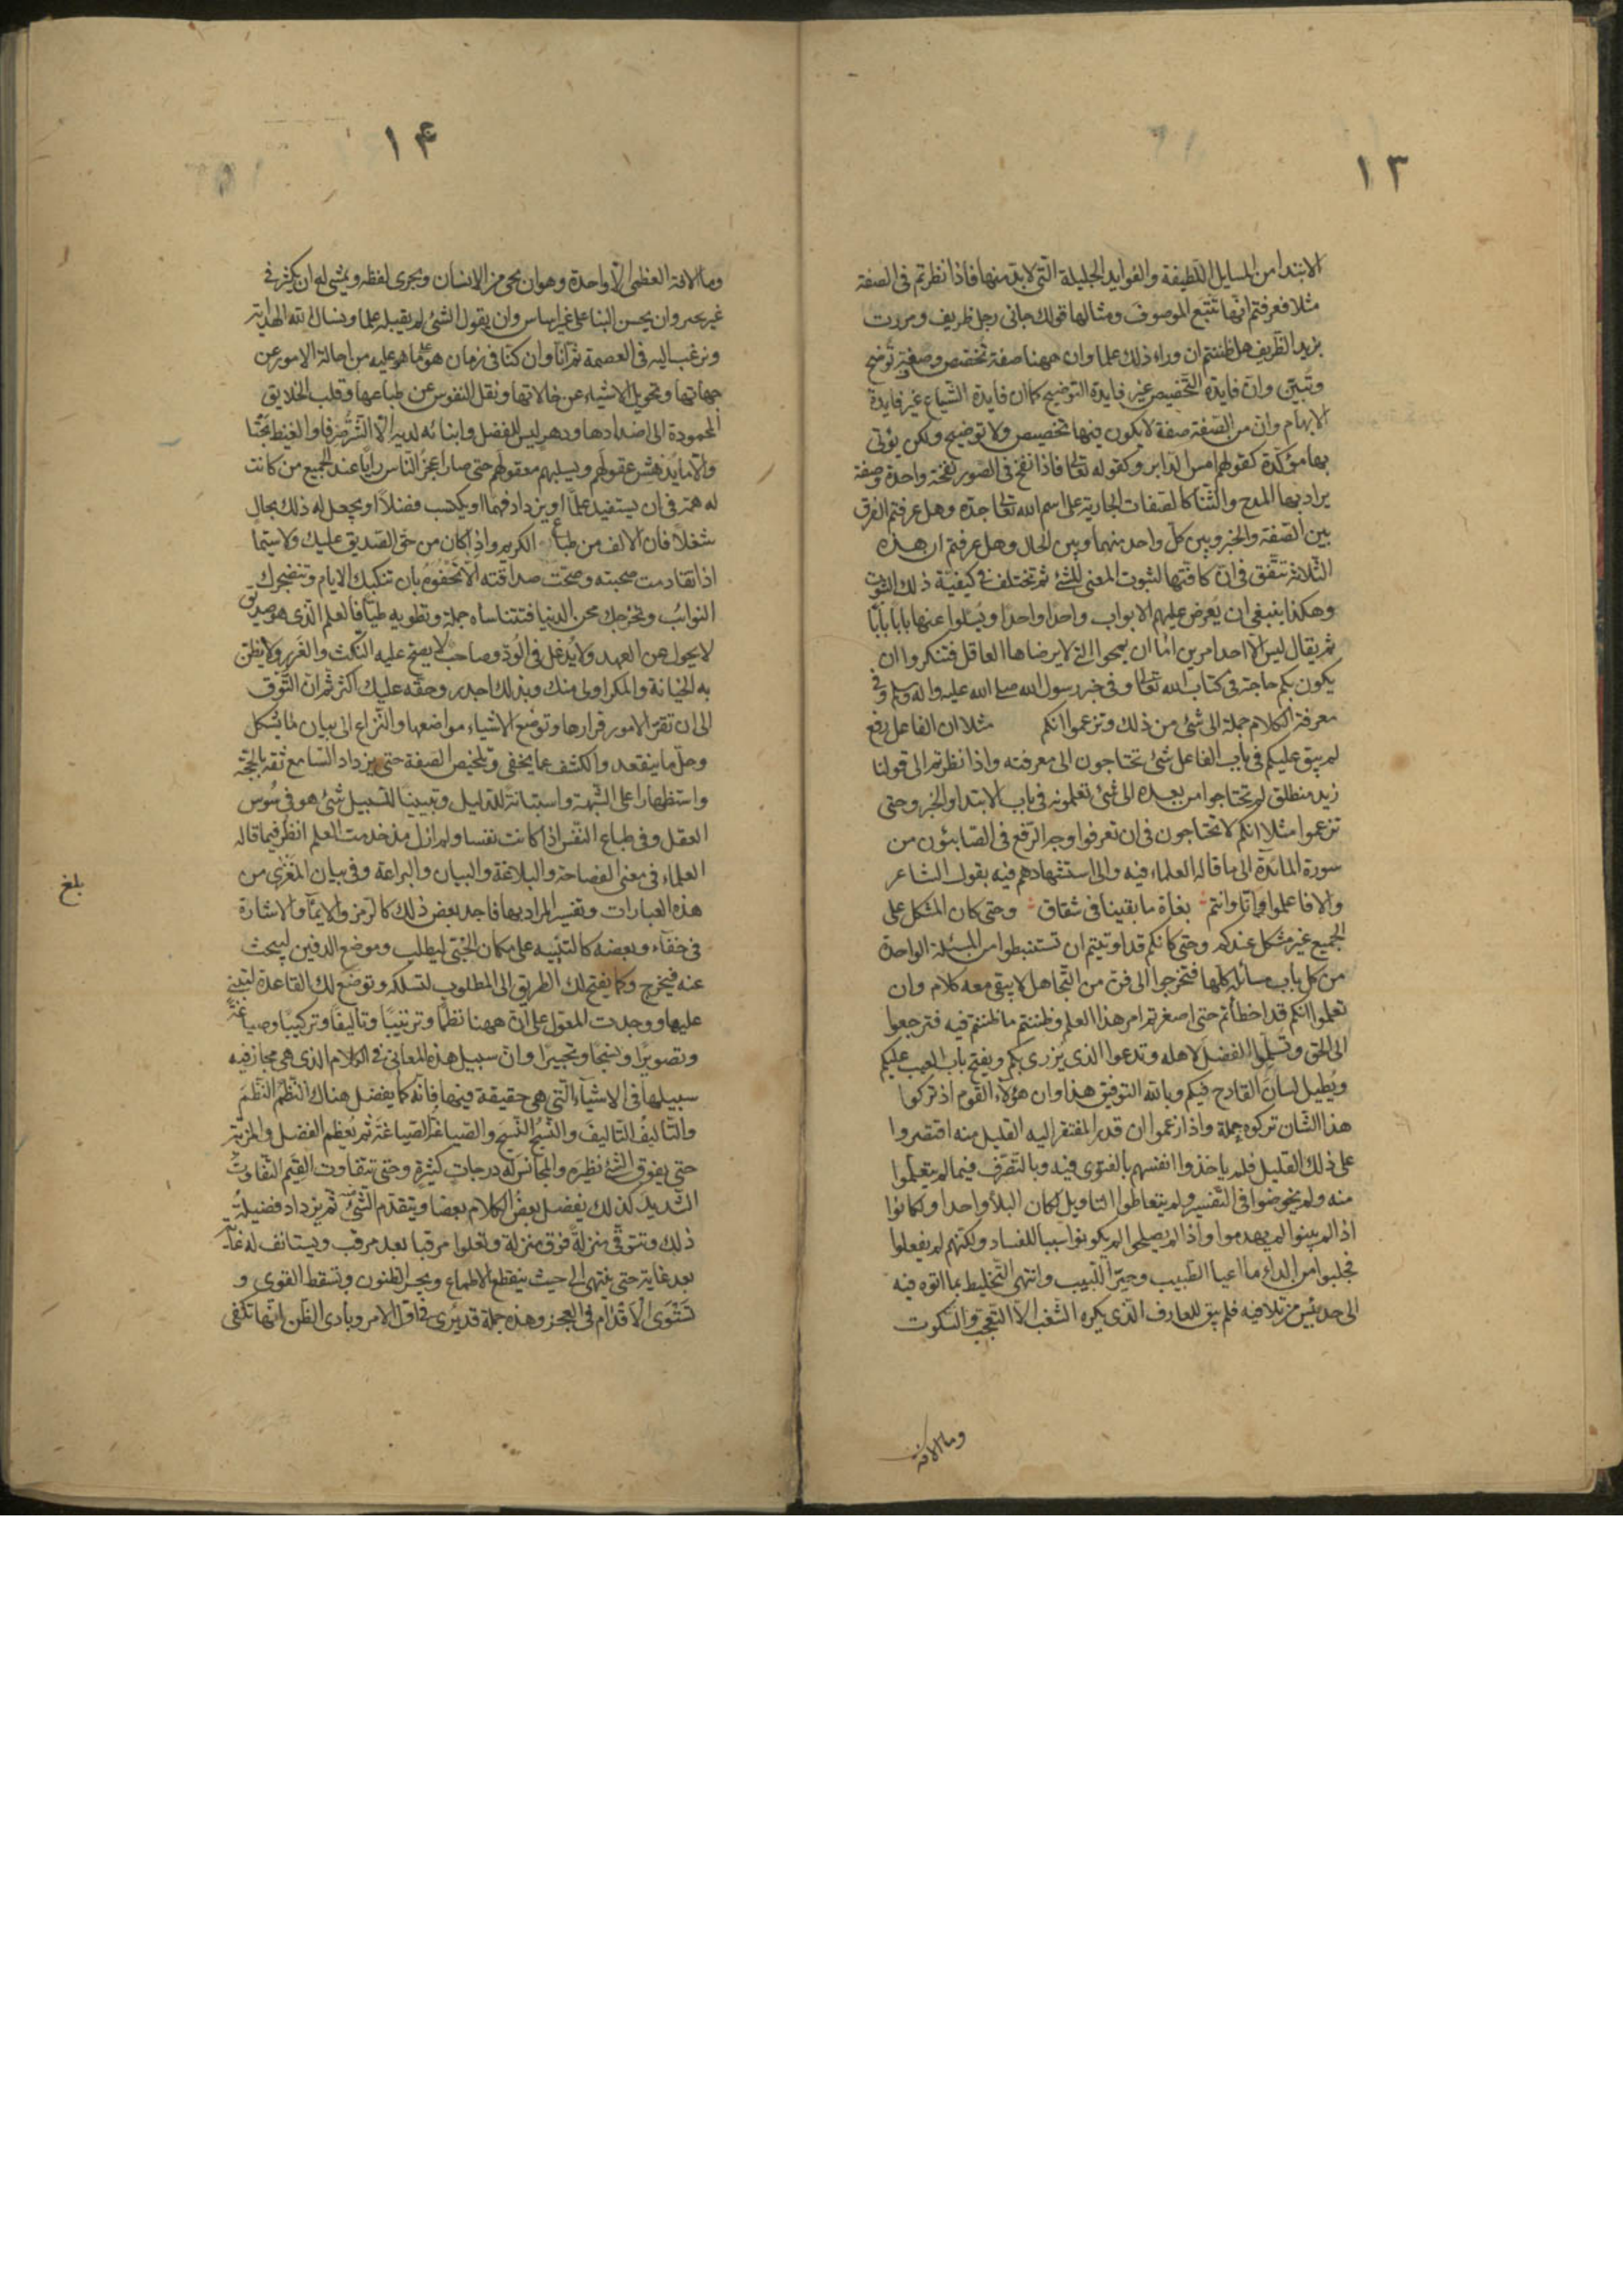 ١٣
الابتدا من المسايل اللطيفة والفوايد الجليلة التي لابد منها فاذا نظرتم فى الصفة
مثلا فعرفتم انها تتبع الموصوف ومثالها قولك جانى رجل ظريف ومررت
بزيد الظريف هل ظننتم ان وراء ذلك علما وان ههنا صفة تخصص وصفة توضح
وتبين وان فايدة التخصيص غير فايدة التوضيح كما ان فايدة الشياع غير فايدة
الابهام وان من الصفة صفة لايكون فيها تخصيص ولا توضيح ولكن يؤتى
بها مؤكدة كقولهم امس الدابر وكقوله تعالى فاذا نفخ فى الصور نفخة واحدة وصفة
يراد بها المدح والثنا كالصفات الجارية على اسم الله تعالى جده وهل عرفتم الفرق
بين الصفة والخبر وبين كل واحد منهما وبين الحال وهل عرفتم ان هذه
الثلاثة تتفق فى ان كافتها لثبوت المعنى للشئ ثم تختلف فى كيفية ذلك الثبوت
وهكذا ينبغى ان يعرض عليهم الابواب واحدا واحدا ويسئلوا عنها بابا بابا
ثم يقال ليس الا احد امرين اما ان  التى لا يرضاها العاقل فتنكروا ان
يكون بكم حاجة فى كتاب الله تعالى وفى خبر رسول الله صلى الله عليه واله وسلم وفى
معرفة الكلام جملة الى شئ من ذلك وتزعموا انكم مثلا ان الفاعل رفع
لم يبق عليكم فى باب الفاعل شئ تحتاجون الى معرفته واذا نظرتم الى قولنا
زيد منطلق لم تحتاجوا من بعده الى شئ تعلمونه فى باب الابتدا والخبر وحتى
تزعموا مثلا انكم لا تحتاجون فى ان تعرفوا وجه الرفع فى الصابئون من
سورة المائدة الى ما قاله العلماء فيه والى استشهادهم فيه بقول الشاعر
والا فاعلموا انا وانتم بغاة ما بقينا فى شقاق وحتى كان المشكل على
الجميع غير مشكل عندكم وحتى كانكم قد اوتيتم ان تستنبطوا من المسئلة الواحدة
من كل باب مسائله كلها فتخرجوا الى فن من التجاهل لا يبقى معه كلام وان
تعلموا انكم قد اخطأتم حتى اصغرتم امر هذا العلم وظننتم ما ظننتم فيه فترجعوا
الى الحق وتسلموا الفضل لاهله وتدعوا الذى يزرى بكم ويفتح باب العيب عليكم
ويطيل لسان القادح فيكم وبالله التوفيق هذا وان هؤلاء القوم اذ تركوا
هذا الشان تركوه جملة واذ زعموا ان قدر المفتقر اليه القليل منه اقتصروا
على ذلك القليل فلم ياخذوا انفسهم بالفتوى فيه وبالتصرف فيما لم يتعلموا
منه ولم يخوضوا فى التفسير ولم يتعاطوا التاويل لكان البلأ واحدا ولكانوا
اذا لم يبنوا لم يهدموا واذا لم يصلحوا لم يكونوا سببا للفساد ولكنهم لم يفعلوا
فجلبوا من الداء ما اعيا الطبيب وحير اللبيب وانتهى التخليط بما اتوه فيه
الى حد يئس من تلافيه فلم يبق للعارف الذى يكره الشغب الا التعجب والسكوت
وما الافة
١۴
وما الافة العظمى الا واحدة وهو ان يجى من الانسان ويجرى لفظه ويمشى له ان يكثر فى
غير  وان يحسن البنا على غير اساس وان يقول الشئ لم يقبله علما ونسال الله الهداية
ونرغب اليه فى العصمة ثم انا وان كنا فى زمان هو على ما هو عليه من احالة الامور عن
جهاتها وتحويل الاشياء عن حالاتها ونقل النفوس عن طباعها وقلب الخلايق
المحمودة الى اضدادها ودهر ليس للفضل وابنائه لديه الا الشر صرفا والغيظ بحتا
والا ما يدهش عقولهم ويسلبهم معقولهم حتى صار اعجز الناس رايا عند الجميع من كانت
له همة فى ان يستفيد علما او يزداد فهما او يكتسب فضلا او يجعل له ذلك بحال
شغلا فان الالف من طباع الكريم واذا كان من حق الصديق عليك ولاسيما
اذا تقادمت صحبته وصحت صداقته الا تجفوه بان تنكبك الايام وتضجرك
النوائب وتحرجك محن الدنيا فتتناساه جملة وتطويه طيا فالعلم الذى هو صديق
لا يحول عن العهد ولا يدغل فى الود وصاحب لا يصح عليه النكث والغدر ولا يظن
به الخيانة والمكر اولى منك وبذلك اجدر وحقه عليك اكثر ثم ان التوق
الى ان تقر الامور قرارها وتوضع الاشياء مواضعها والنزاع الى بيان ما يشكل
وحل ما ينعقد والكشف عما يخفى وتلخيص الصفة حتى يزداد السامع ثقة بالحجة
واستظهارا على الشبهة واستبانة للدليل وتبيينا للسبيل شئ هو فى سوس
العقل وفى طباع النفس اذا كانت نفسا ولم ازل منذ خدمت العلم انظر فيما قاله
العلماء فى معنى الفصاحة والبلاغة والبيان والبراعة وفى بيان المغزى من
هذه العبارات وتفسير المراد بها فاجد بعض ذلك كالرمز والايماء والاشارة
فى خفاء وبعضه كالتنبيه على مكان الخبئ ليطلب وموضع الدفين ليبحث
عنه فيخرج وكما يفتح لك الطريق الى المطلوب لتسلكه وتوضع لك القاعدة لتبنى
عليها ووجدت المعول على ان ههنا نظما وترتيبا وتاليفا وتركيبا وصياغة
وتصويرا ونسجا وتحبيرا وان سبيل هذه المعانى فى الكلام الذى هى مجاز فيه
سبيلها فى الاشياء التى هى حقيقة فيها فانه كما يفضل هناك النظم النظم
والتاليف التاليف والنسج النسج والصياغة الصياغة ثم يعظم الفضل والمزية
حتى يفوق الشئ نظيره والمجانس له درجات كثيرة وحتى تتفاوت القيم التفاوت
الشديد كذلك يفضل بعض الكلام بعضا ويتقدم الشئ ثم يزداد فضيلة
ذلك وتترقى منزلة فوق منزلة وتعلوا مرقبا بعد مرقب ويستانف له غاية
بعد غاية حتى ينتهى الى حيث ينقطع الاطماع ويحسر الظنون وتسقط القوى و
تستوى الاقدام فى العجز وهذه جملة قد يرى فى اول الامر وبادى الظن انها تكفى
بلغ